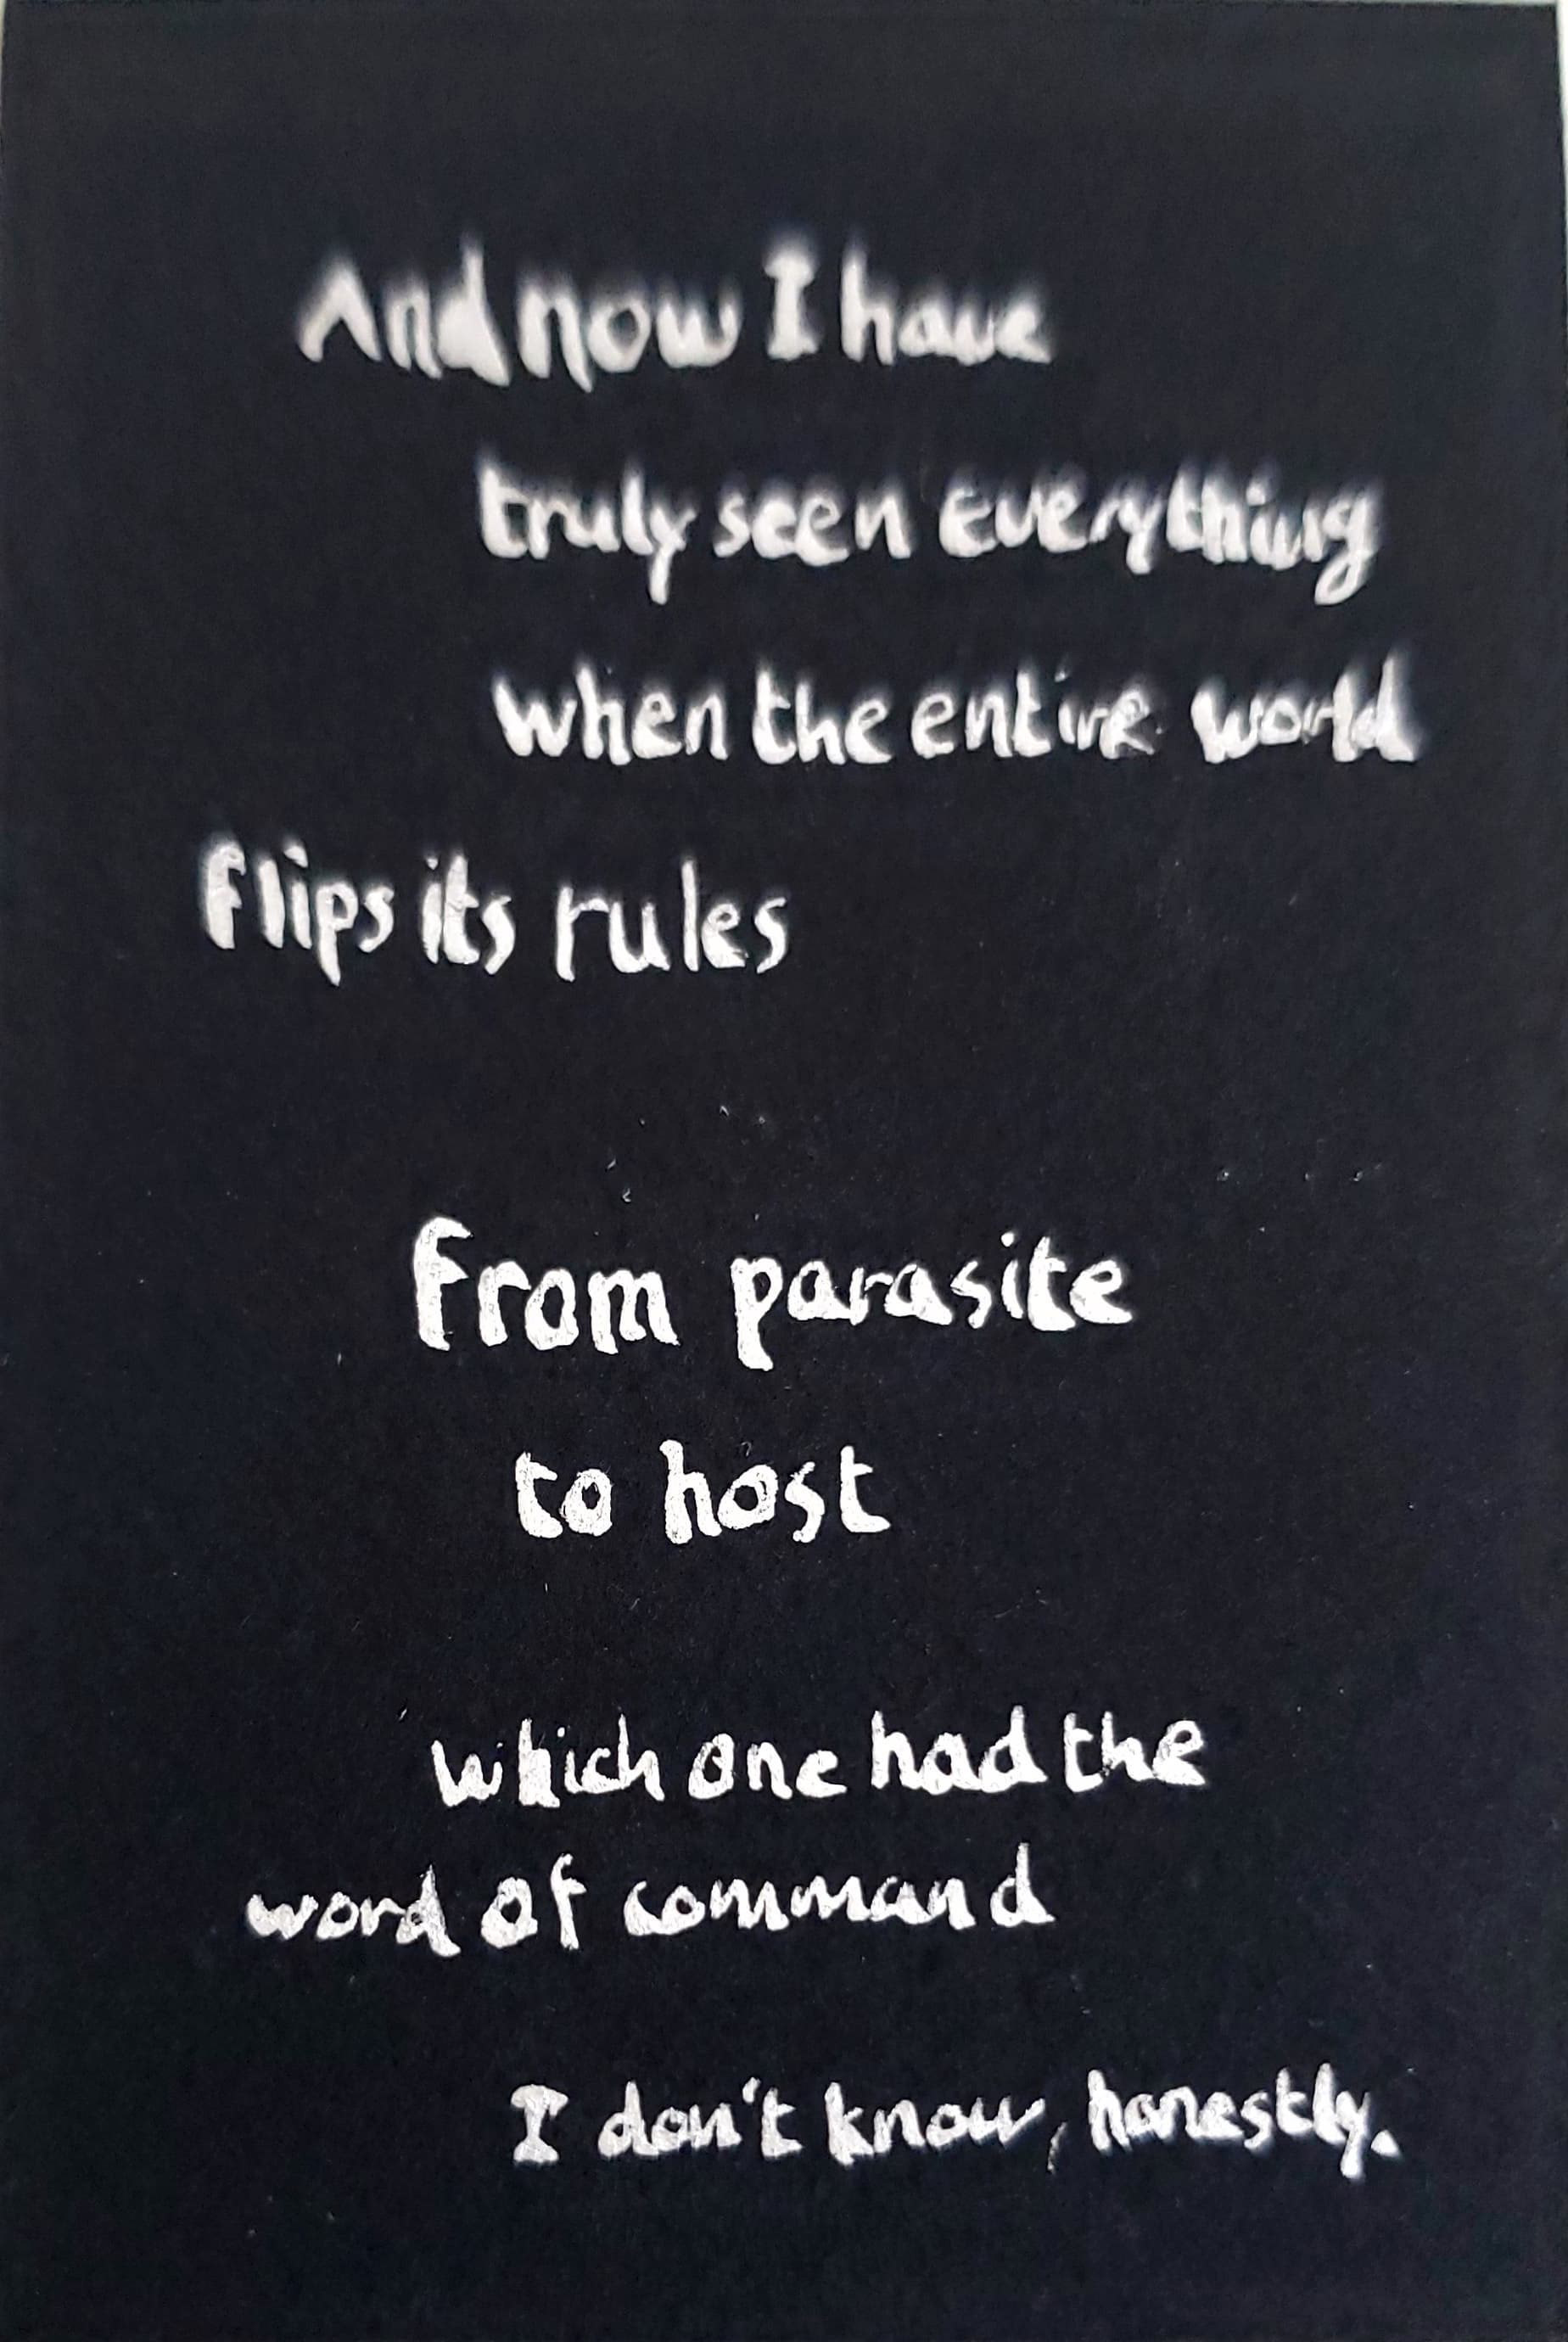 And now I have
truly seen everything
when the entire world
flips its rules
from parasite
to host
which one had the
word of command
I don't know, honestly.